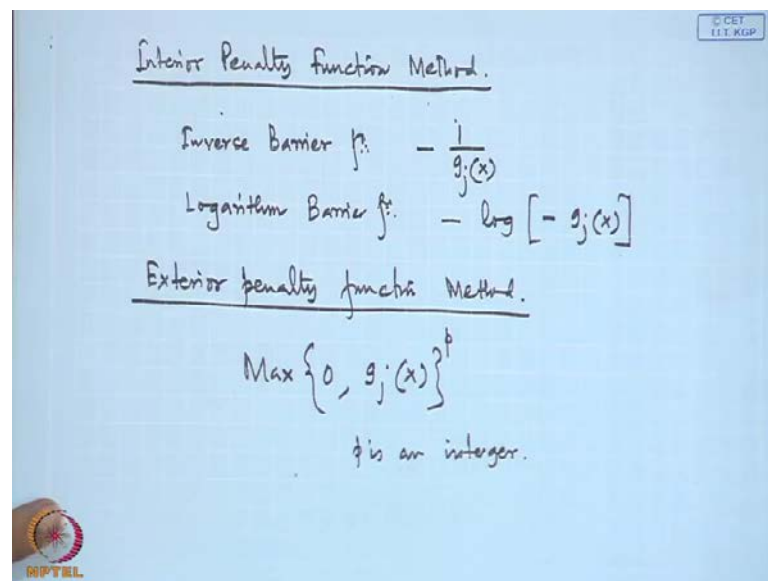 © CET
I.I.T. KGP
Interior Penalty function Method.
Inverse Barrier fn. - 1/gj(x)
Logarithm Barrier fn. - log [- gj(x)]
Exterior penalty functn Method.
Max {0, gj(x)}^p
p is an interger.
NPTEL